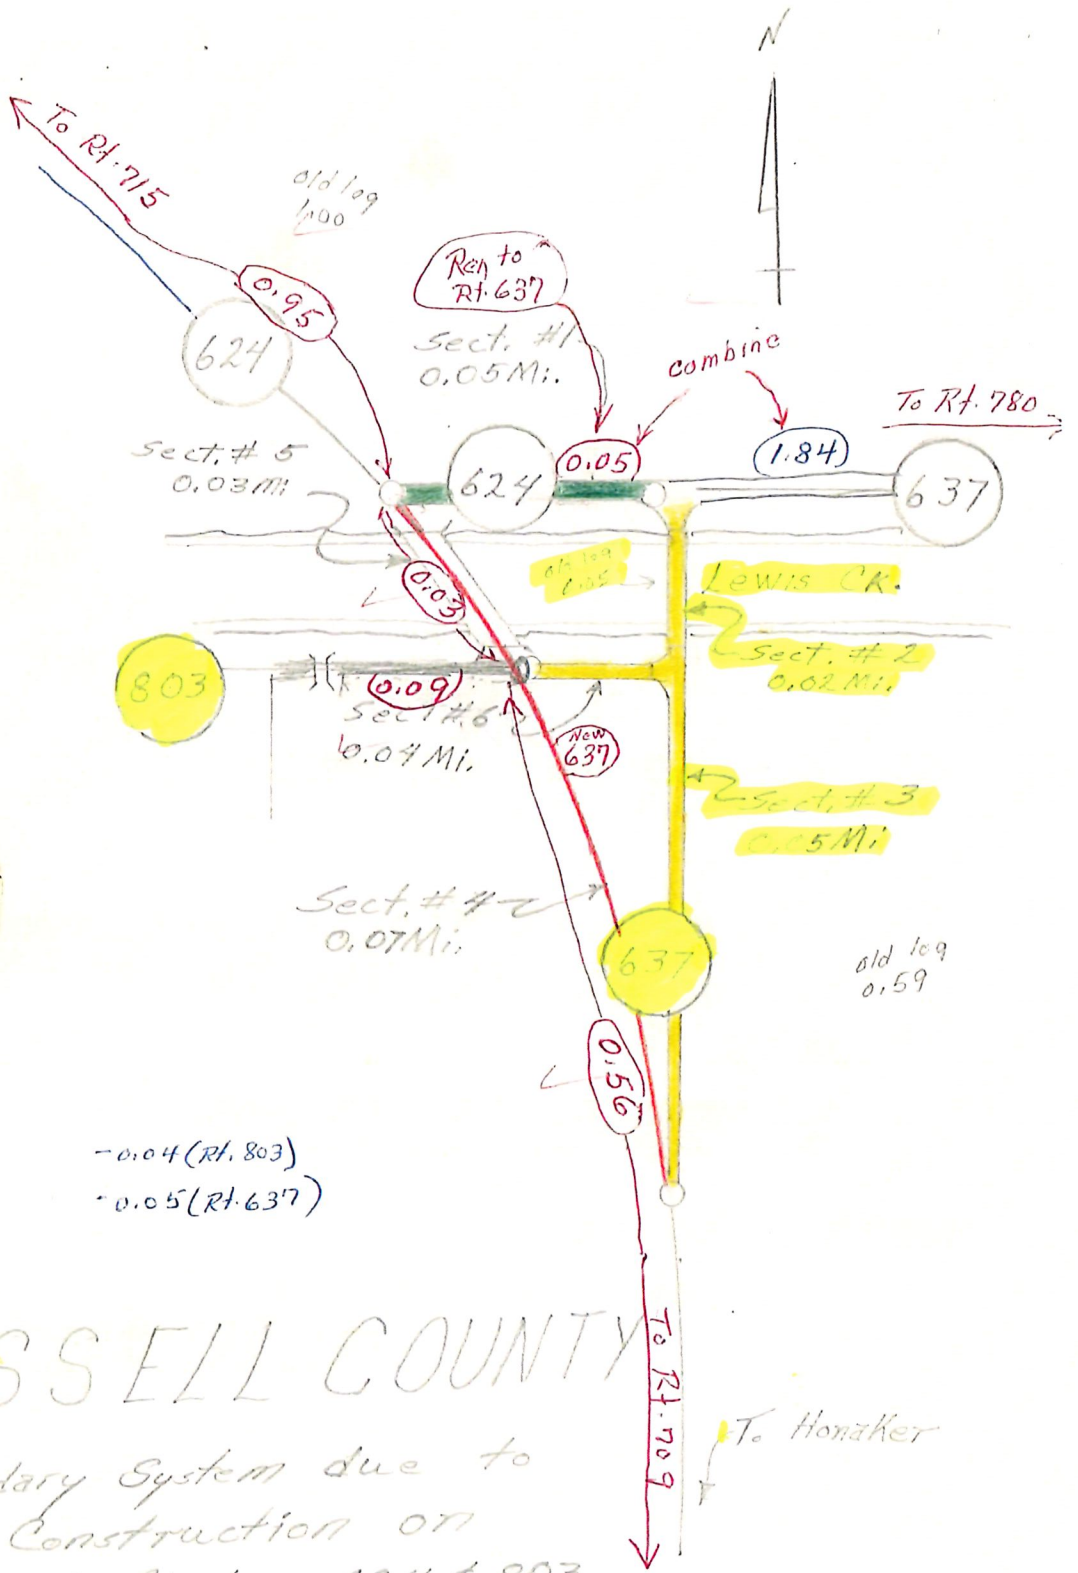 N
To Rt. 715
old log
1.00
0.95
Ren to
Rt. 637
624
Sect. #1
0.05 Mi.
combine
To Rt. 780
Sect. # 5
0.03 mi
624
0.05
1.84
637
old log
Lewis CK.
0.03
Sect. # 2
0.02 Mi.
803
0.09
Sect #6
0.04 Mi.
New
637
Sect. # 3
0.05 Mi
Sect. # 4
0.07 Mi.
637
old log
0.59
0.56
-0.04 (Rt. 803)
-0.05 (Rt. 637)
SSELL COUNTY
To Rt. 709
To Honaker
dary System due to
Construction on
803